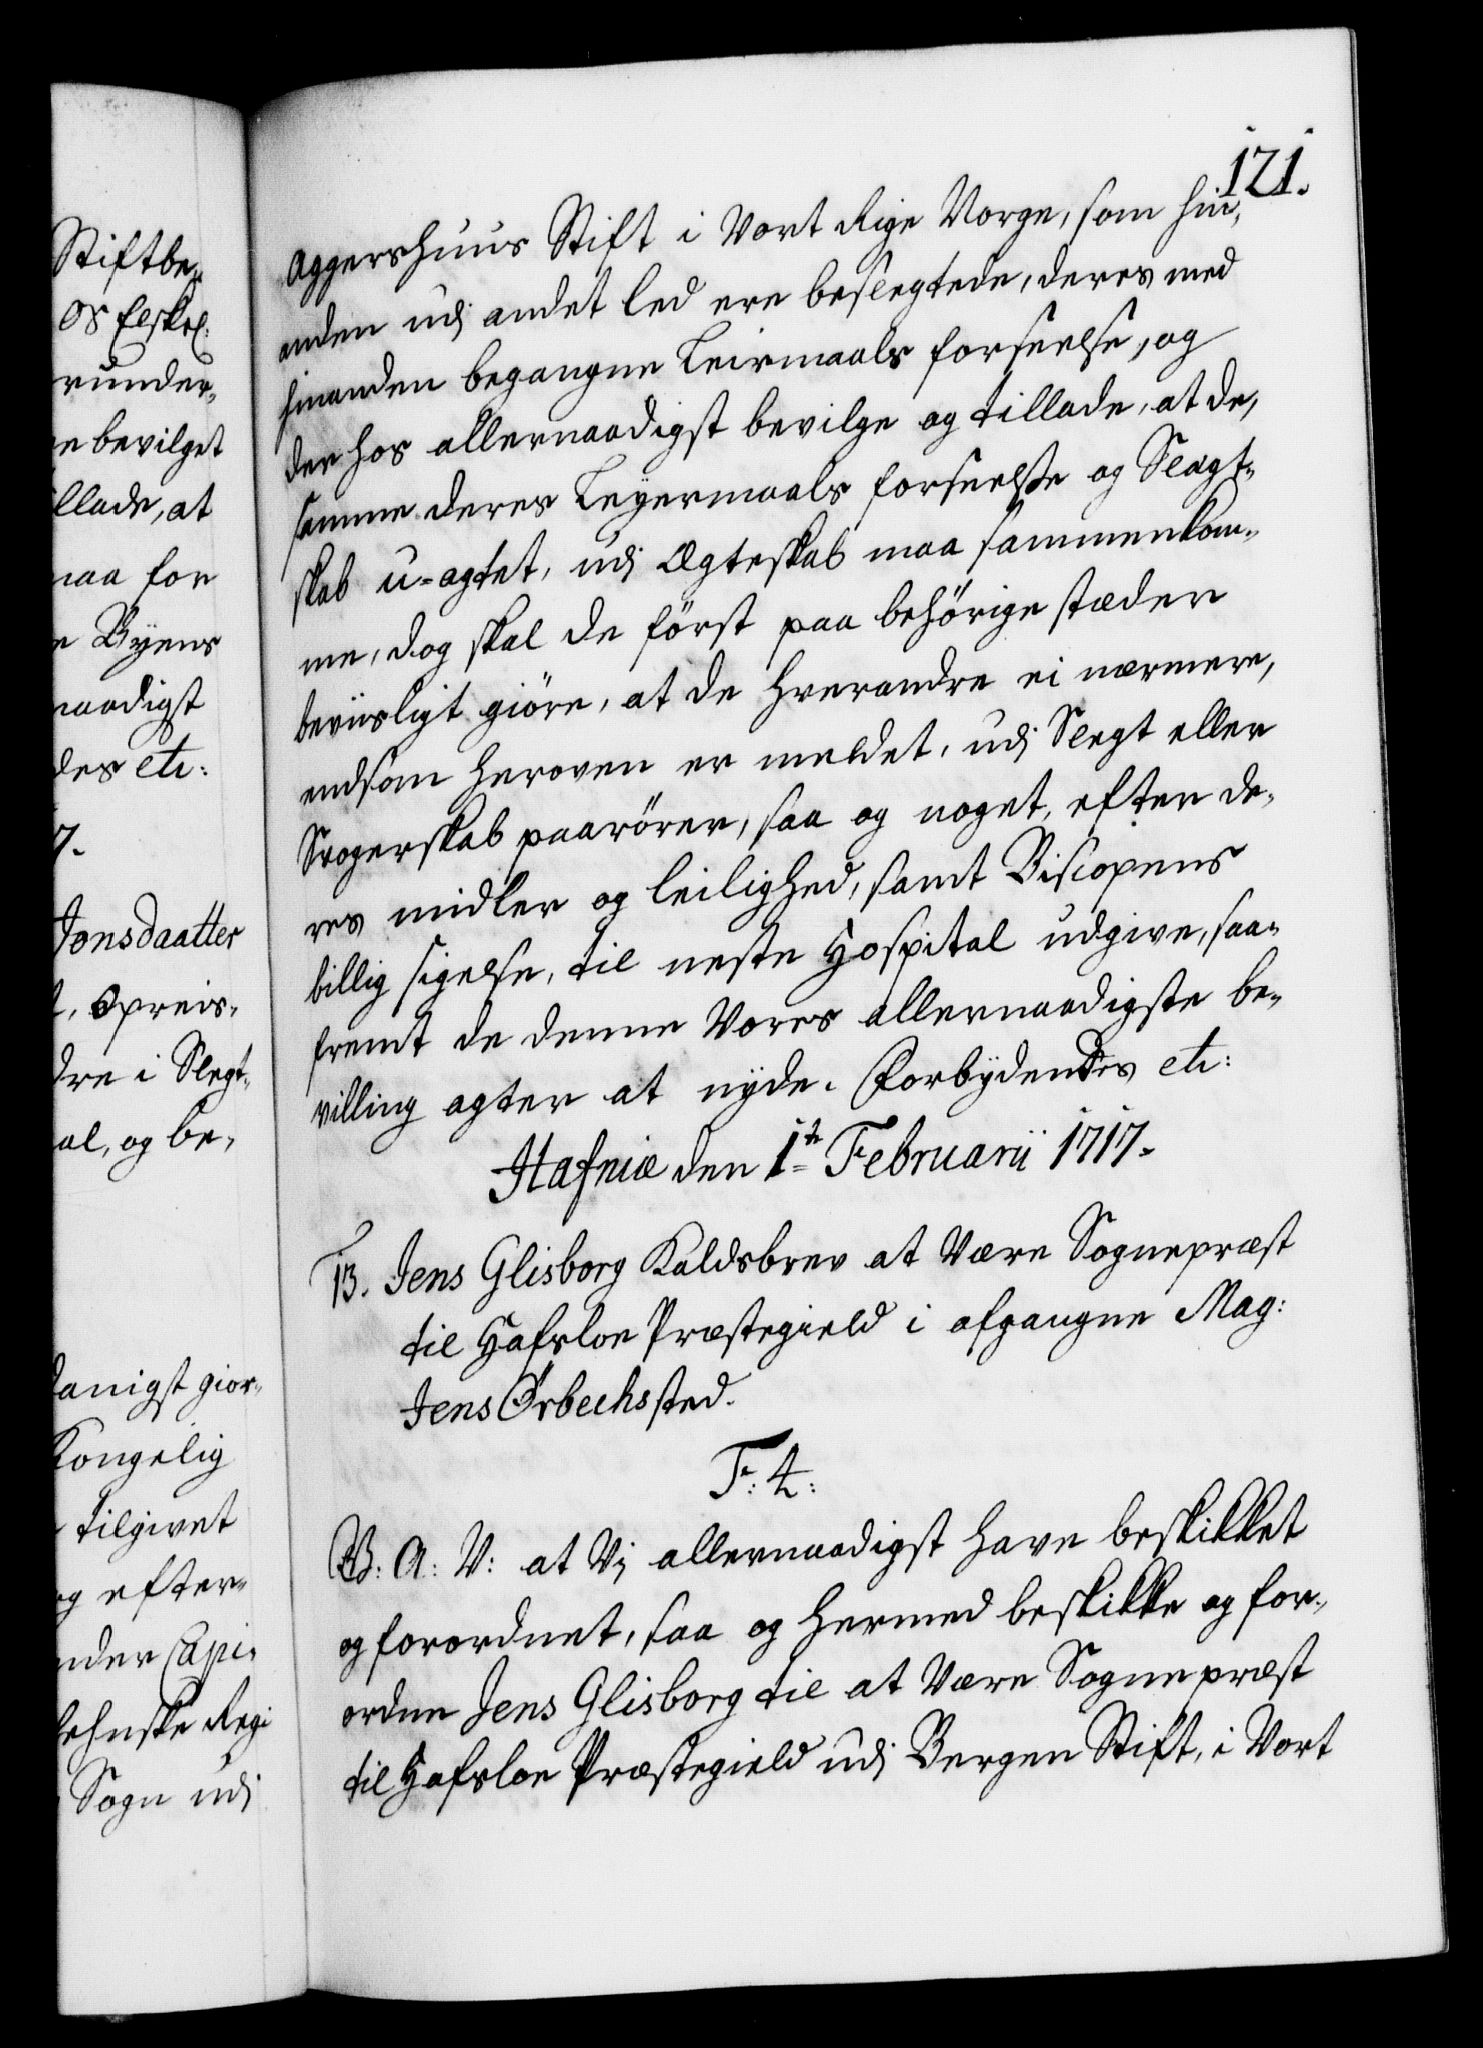 Stiftbe,,
os Elskel:
runder,,
e bevilget
llade, at
naa for
e Byens
naadigst
des etc:
7.
Jonsdaatter
t, Opreis,,
dre i Slegt,,
al, og be,,
danigst gior,,
Kongelig
tilgivet
og efter,,
nder Capi,,
lehnske Regi
Sogn udi
121.
Aggershuus Stift i Vort Rige Norge, som hin,,
anden udj andet led ere beslegtede, deres med
hinanden begangne Leirmaals forseelse, og
der hos allernaadigst bevilge og tillade, at de,
samme deres Leyermaals forseelse og Slægt,,
skab u-agtet, udj Ægteskab maa sammenkom,,
me, dog skal de först paa behörige stæder
beviisligt giöre, at de hverandre ei nærmere,
endsom heroven er meldet, udj Slegt eller
Svogerskab paarörer, saa og noget, efter de,,
res midler og leilighed, samt Biscopens
billig sigelse, til neste Hospital udgive, saa,,
fremt de denne Vores allernaadigste be,,
villing agter at nyde. Forbydendes etc:
Hafniæ den 1te Februarii 1717.
13. Jens Glisborg Kaldsbrev at Være Sognepræst
til Hafsloe Præstegield i afgangne Mag:
Jens Örbechs sted.
F: 4:
G: A: V: at Vj allernaadigst have beskikket
og forordnet, saa og hermed beskikke og for,,
ordne Jens Glisborg til at Være Sognepræst
til Hafsloe Præstegield udj Bergen Stift, i Vort